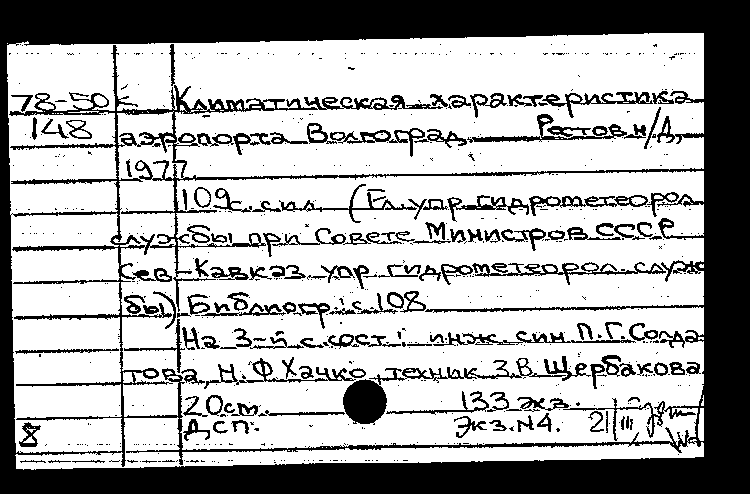 78-50 Климатическая характеристика
148 аэропорта Волгоград. Ростов н/Д,
1977.
109с. с ил. (Гл. упр. гидрометеорол.
службы при Совете Министров СССР
Сев-Кавказ упр. гидрометеорол. служ
бы) Библиогр.: с. 108
На 3-й с. сост.: инж. син. П.Г. Солда-
това, Н.Ф. Хачко, техник З.В. Щербакова
20см. 133 экз.
ДСП. Экз. N4. 21/III
8